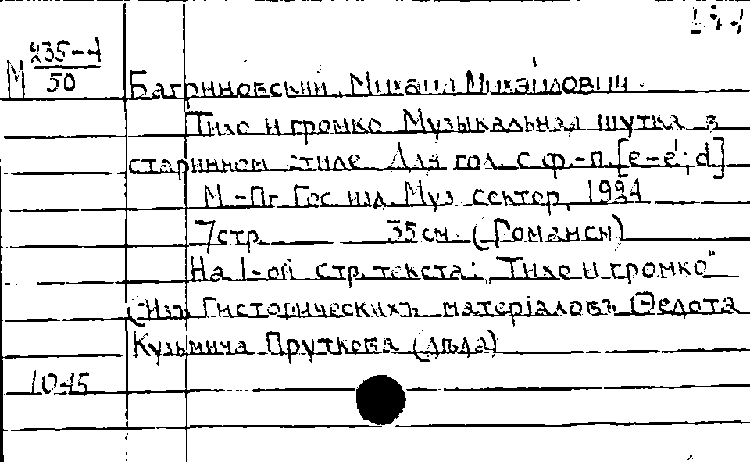 М 235-4
50
Багриновский, Михаил Михайлович.
Тихо и громко Музыкальная шутка в
старинном стиле Для гол. с ф.-п. [e-e'; d]
М.-Пг Гос изд. Муз сектор, 1924
7 стр. 35 см. (Романсы)
На 1-ой стр. текста: "Тихо и громко"
(Изъ Гисторическихъ матеріаловъ Ѳедота
Кузьмича Пруткова (дѣда)
1045